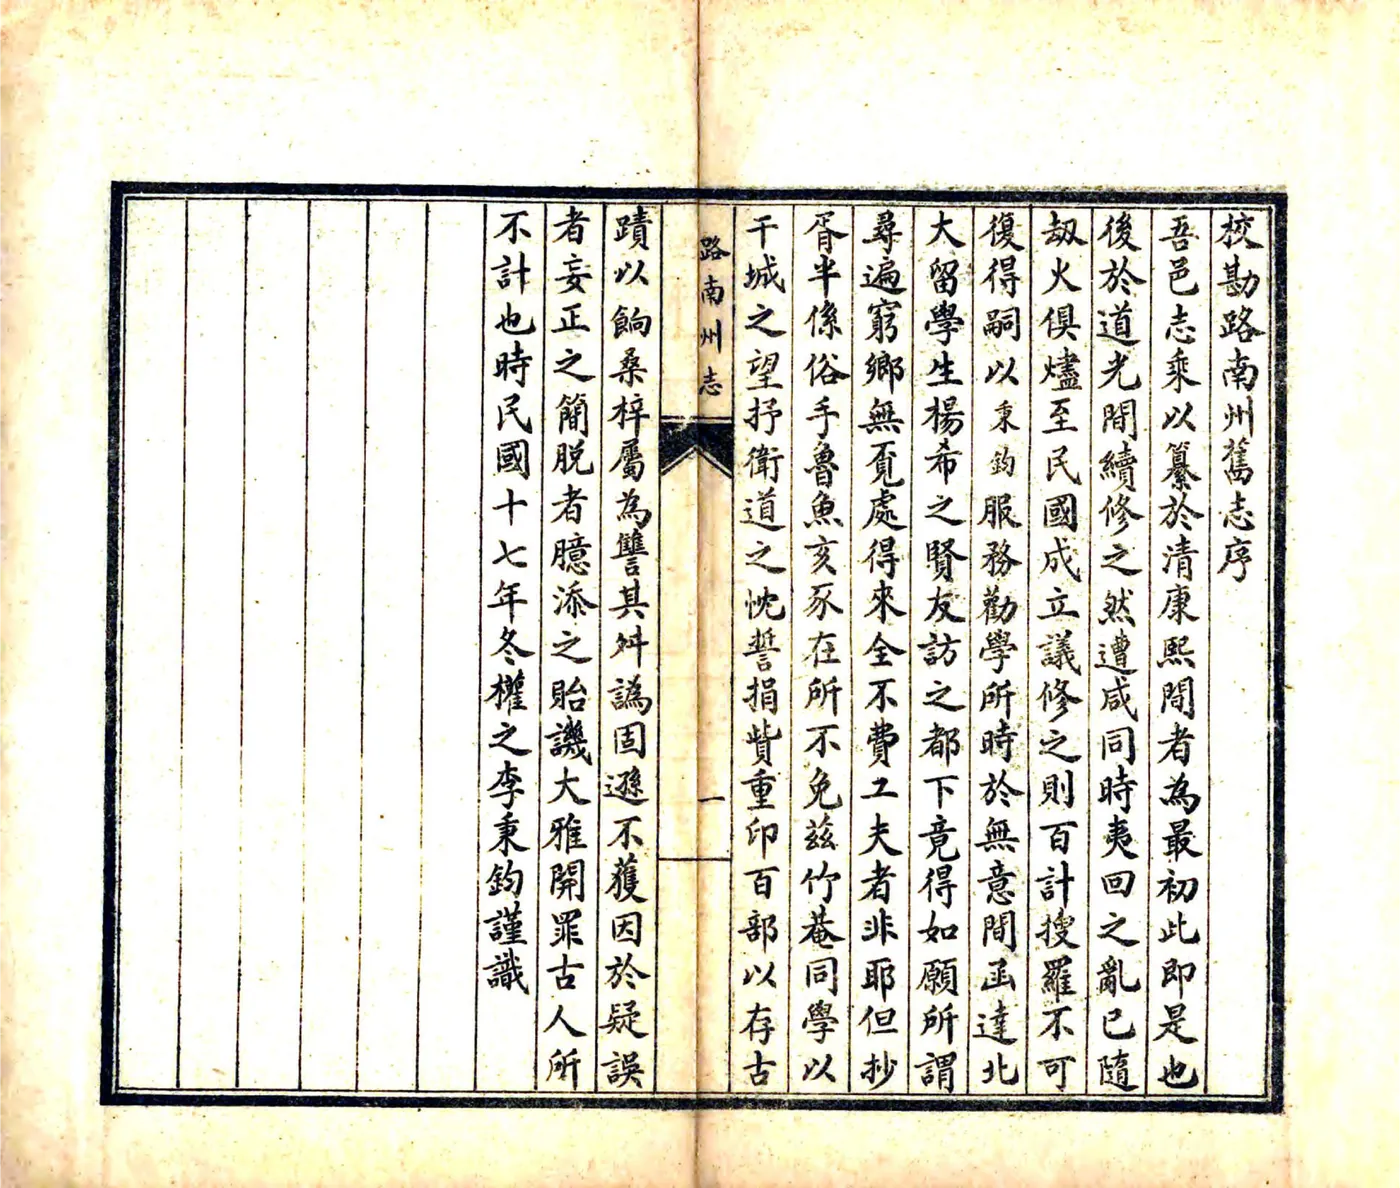 校勘路南州舊志序
吾邑志乘以纂於清康熙間者為最初此即是也
後於道光間續修之然遭咸同時夷回之亂已隨
刼火俱燼至民國成立議修之則百計搜羅不可
復得嗣以秉鈞服務勸學所時於無意間函達北
大留學生楊希之賢友訪之都下竟得如願所謂
尋遍窮鄉無覓處得來全不費工夫者非耶但抄
胥半係俗手魯魚亥豕在所不免茲竹菴同學以
干城之望抒衛道之忱誓捐貲重印百部以存古
路南州志
一
蹟以餉桑梓屬為讐其舛譌固遜不獲因於疑誤
者妄正之簡脱者臆添之貽譏大雅開罪古人所
不計也時民國十七年冬權之李秉鈞謹識